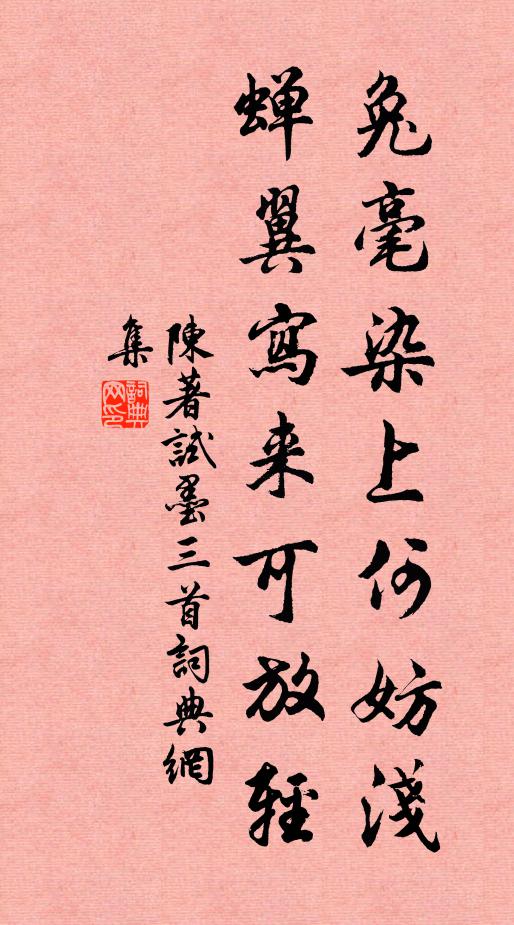 兔毫染上何妨淺
蟬翼寫来可放輕
陳著試墨三首詞典網
集
詞典网印